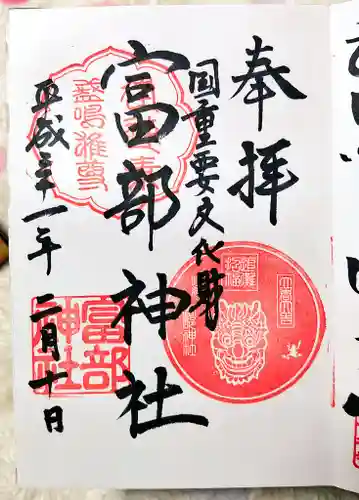 奉拝
国重要文化財
富部神社
平成三十一年 二月十日
富部
神社